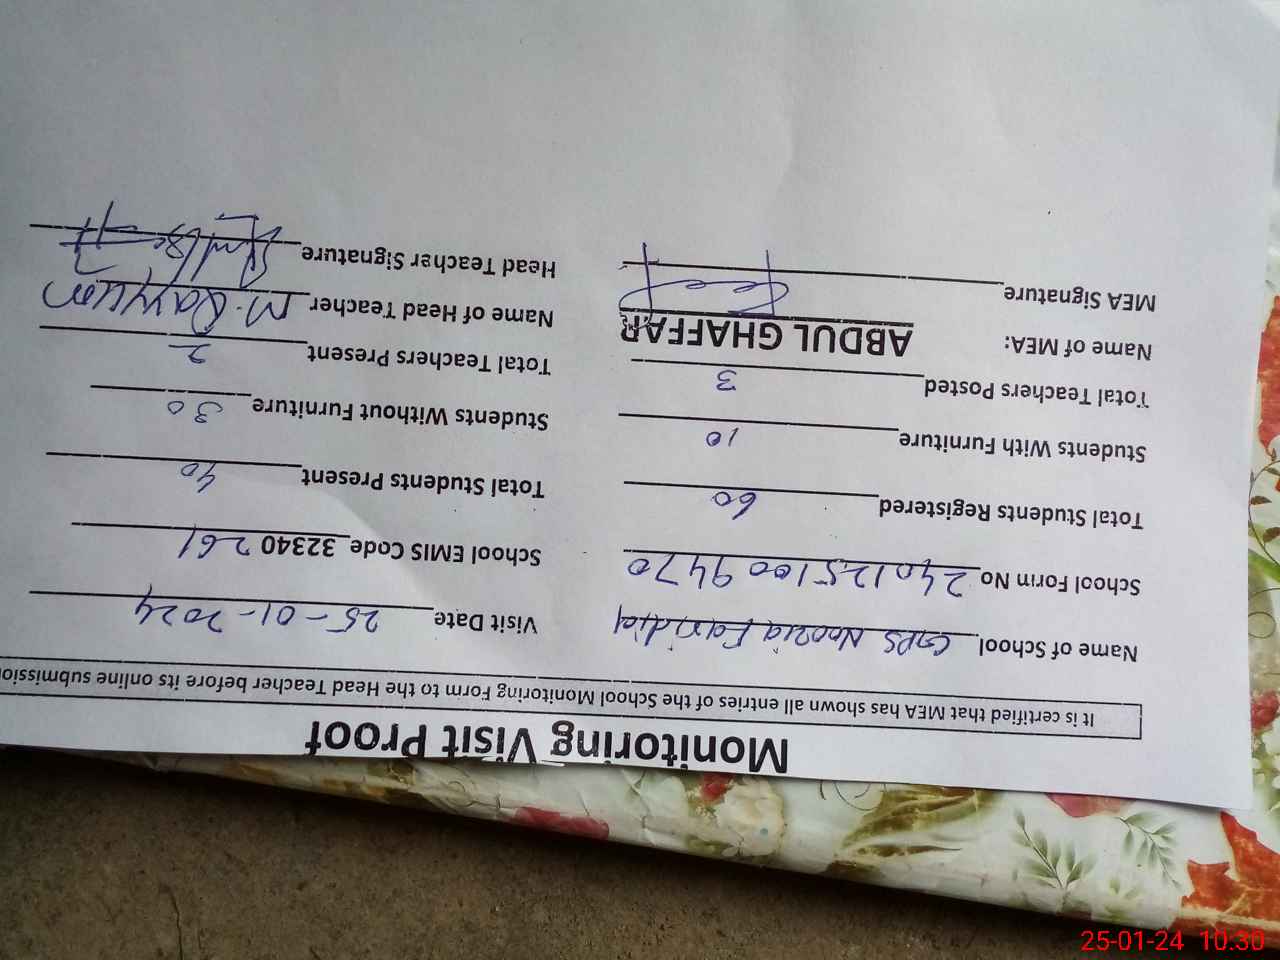 Monitoring Visit Proof
It is certified that MEA has shown all entries of the School Monitoring Form to the Head Teacher before its online submission
Name of School GPS Nooria Faridia Visit Date 25-01-2024
School Form No 2401251009470 School EMIS Code 32340261
Total Students Registered 60 Total Students Present 40
Students With Furniture 10 Students Without Furniture 30
Total Teachers Posted 3 Total Teachers Present 2
Name of MEA: ABDUL GHAFFAR Name of Head Teacher M. Qayyum
MEA Signature Head Teacher Signature
25-01-24 10:30